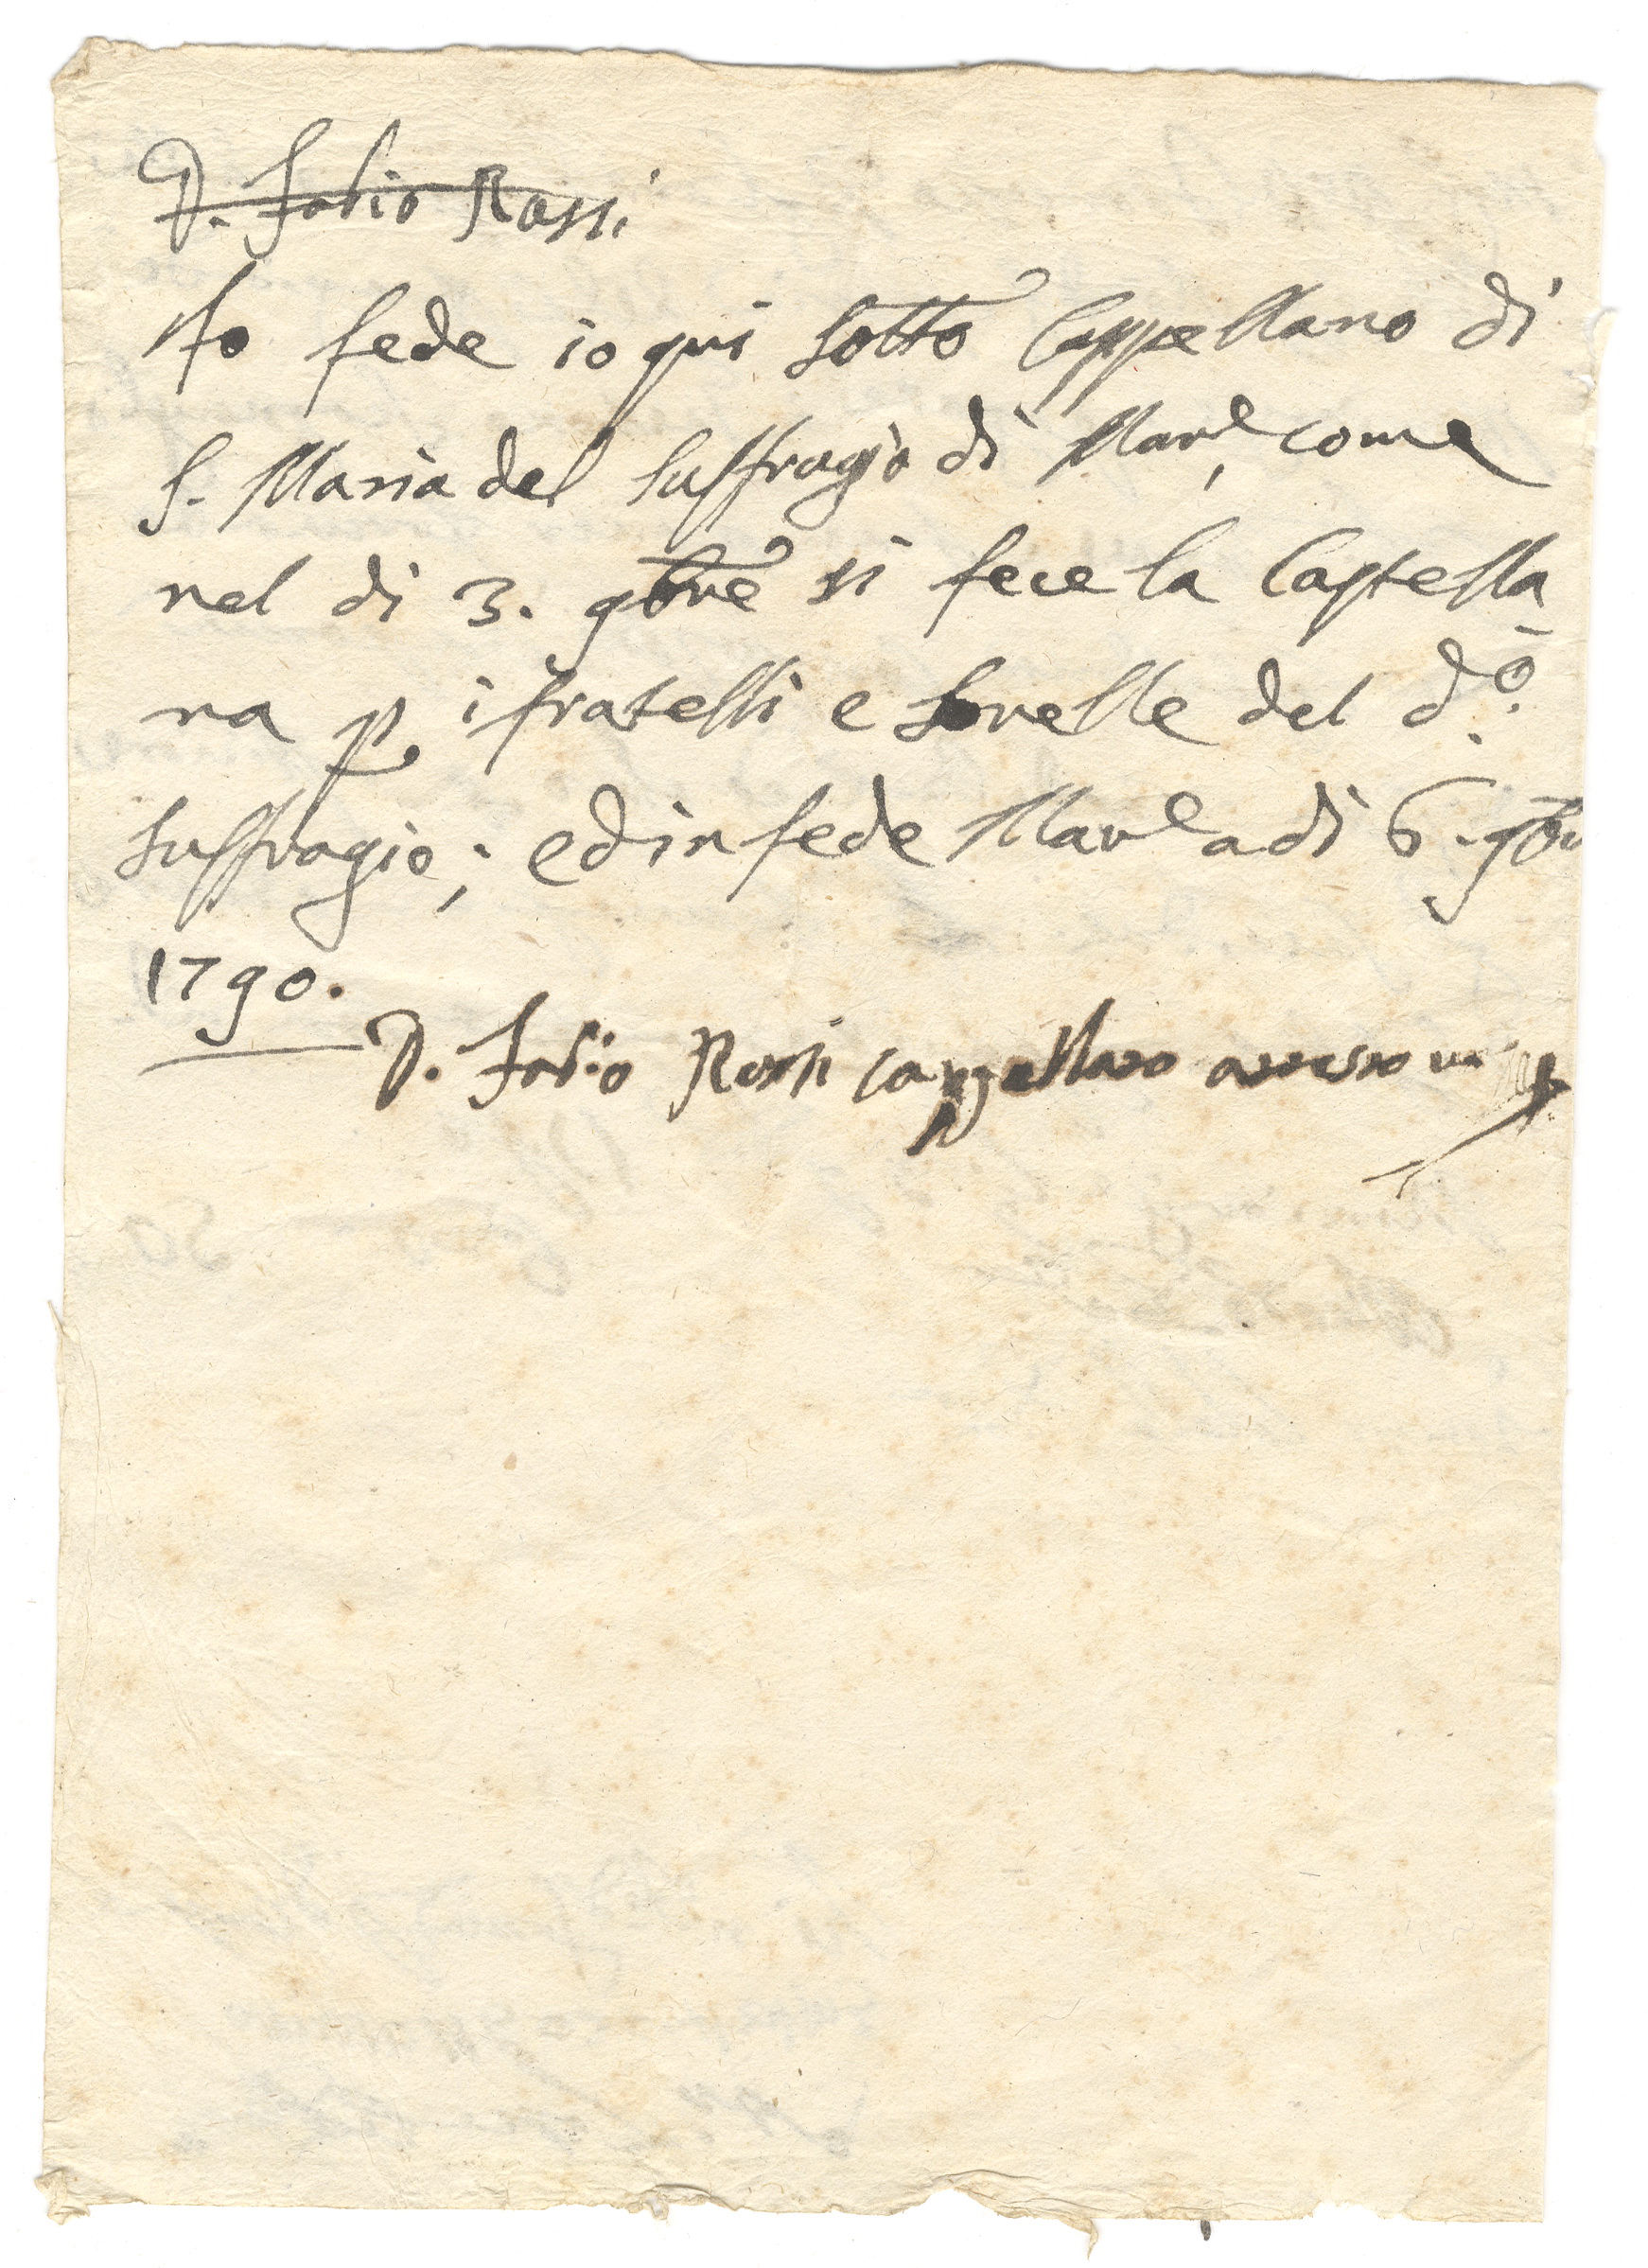 D. Fabio Rossi
Fo fede io qui sotto Cappellano di
S. Maria del Suffragio di Mar.e, come
nel di 3. 9bre si fece la Cappella
na p i fratelli e Sorelle del do.
Suffragio; ed in fede Mare adi 6. 9br
1790.
D. Fabio Rossi cappellano